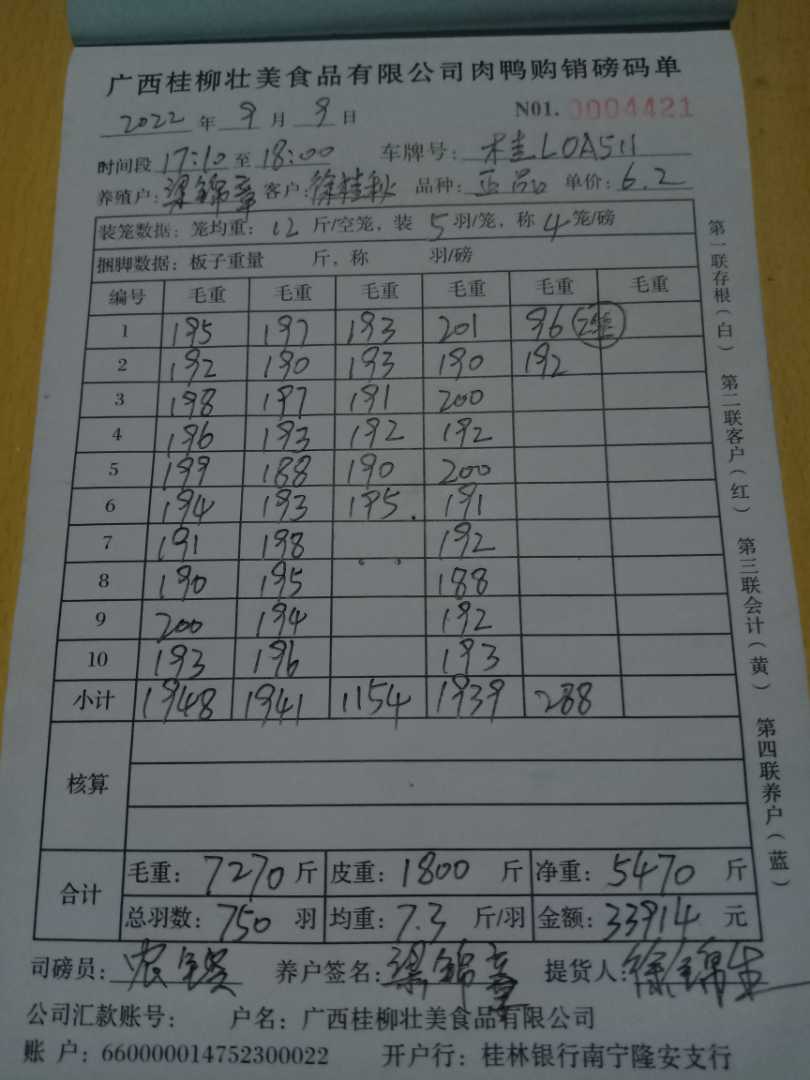 广西桂柳壮美食品有限公司肉鸭购销磅码单
2022 年 9 月 9 日 N01. 0004421
时间段 17:10 至 18:00 车牌号: 桂L0A511
养殖户: 梁锦章 客户: 徐桂秋 品种: 正品 单价: 6.2
装笼数据: 笼均重: 12 斤/空笼, 装 5 羽/笼, 称 4 笼/磅
捆脚数据: 板子重量 斤, 称 羽/磅
编号 毛重 毛重 毛重 毛重 毛重 毛重
1 195 197 193 201 96 2笼
2 192 190 193 190 192
3 198 197 191 200
4 196 193 192 192
5 199 188 190 200
6 194 193 195 191
7 191 198 192
8 190 195 188
9 200 194 192
10 193 196 193
小计 1948 1941 1154 1939 288
核算
合计 毛重: 7270 斤 皮重: 1800 斤 净重: 5470 斤
总羽数: 750 羽 均重: 7.3 斤/羽 金额: 33914 元
司磅员: 养户签名: 梁锦章 提货人: 徐锦
公司汇款账号: 户名: 广西桂柳壮美食品有限公司
账 户: 660000014752300022 开户行: 桂林银行南宁隆安支行
第一联存根(白) 第二联客户(红) 第三联会计(黄) 第四联养户(蓝)